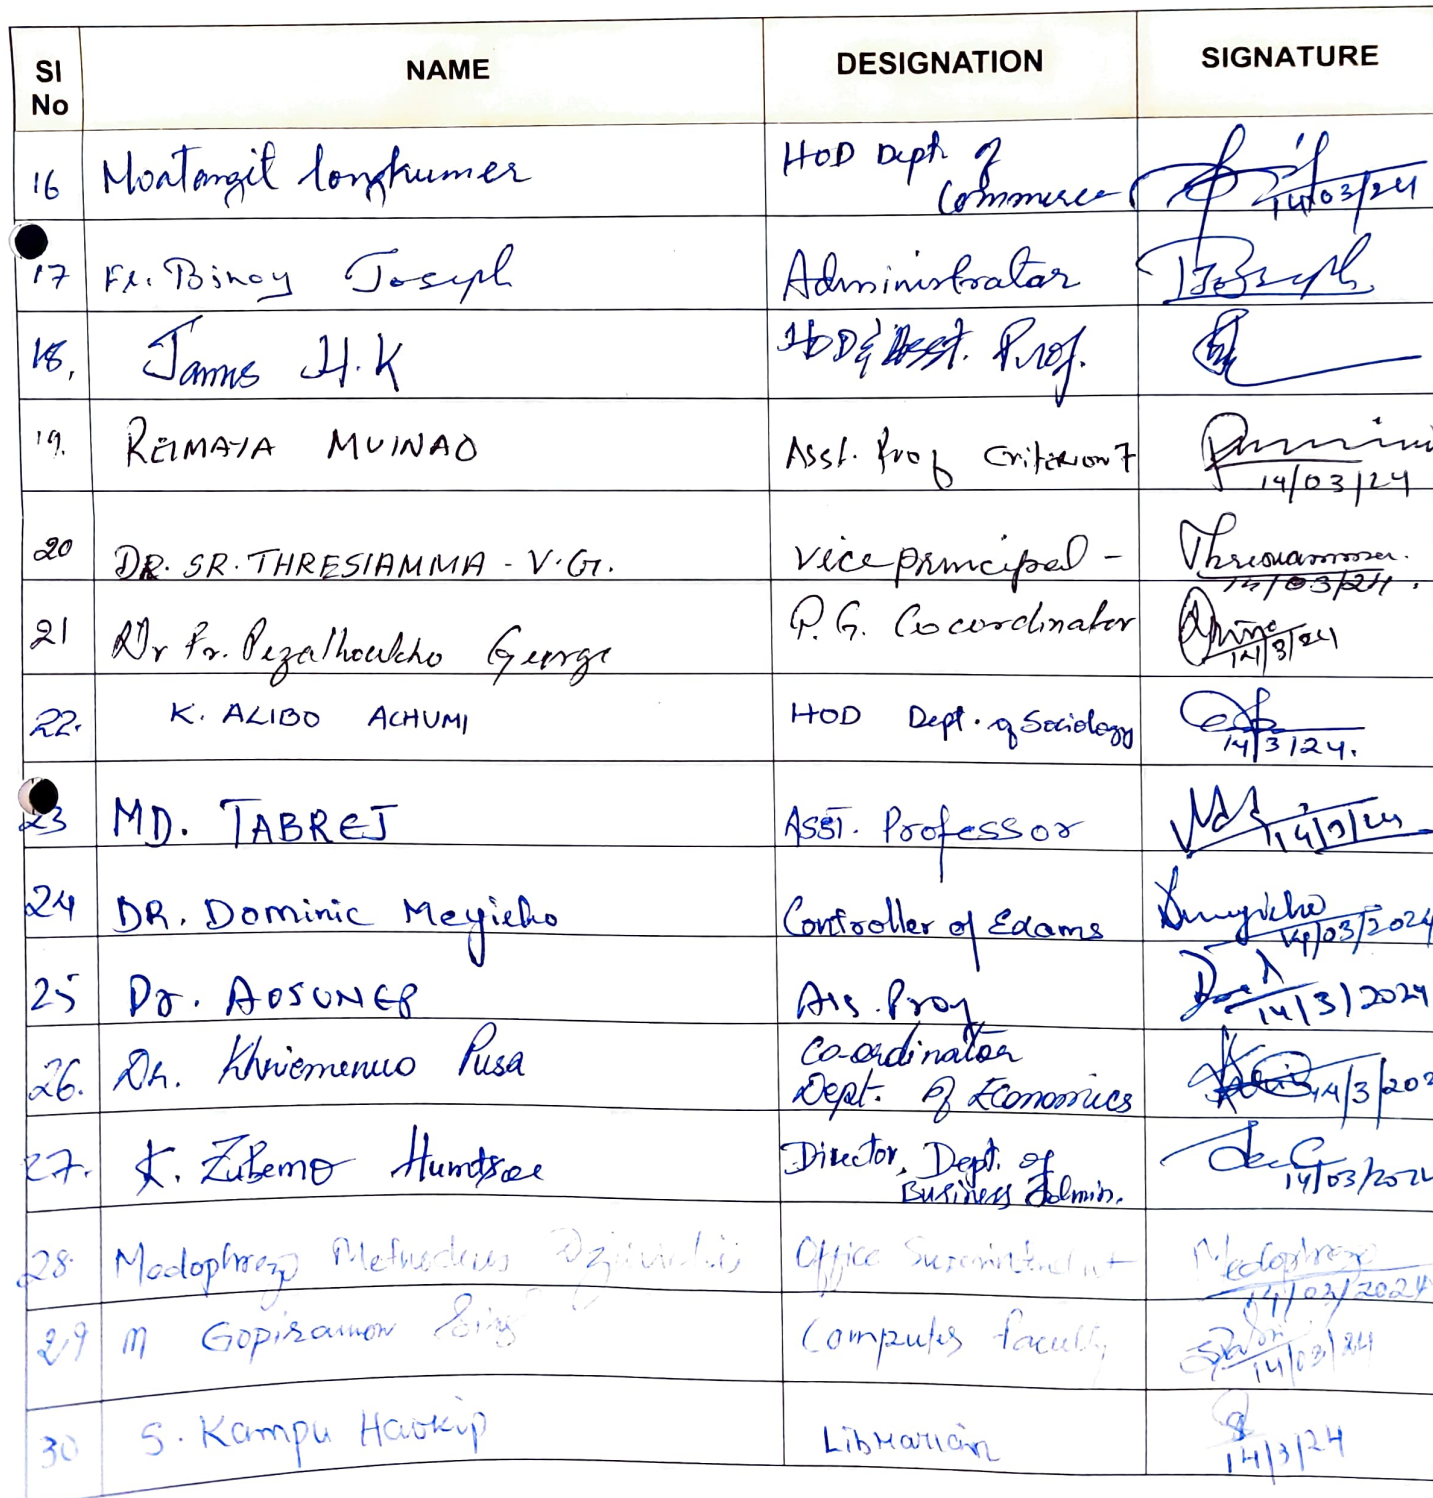 SI No NAME DESIGNATION SIGNATURE
16 Moatangit longkumer HOD Dept of Commerce 14/03/24
17 Fr. Binoy Joseph Administrator Joseph
18. James H.K HOD & Asst. Prof.
19. REIMAYA MUINAO Asst. Prof Criterion 7 14/03/24
20 DR. SR. THRESIAMMA - V.G. Vice principal - Thresiamma. 14/03/24.
21 Dr Fr. Pezalhoukho George P.G. Cocordinator 14/3/24
22. K. ALIBO ACHUMI HOD Dept. of Sociology 14/3/24.
23 MD. TABREJ ASST. Professor 14/3/24
24 DR. Dominic Meyieho Controller of Exams 14/03/2024
25 Dr. AOSUNEP Ass. Prof 14/3/2024
26. Dr. Khriemenuo Pusa Co-ordinator Dept. of Economics 14/3/202
27. K. Zubemo Humtsoe Director, Dept. of Business Admin. 14/03/202
28. Medophrezo Office 14/03/2024
29 M Gopiramon Computer Faculty 14/03/24
30 S. Kampu Haokip Librarian 14/3/24